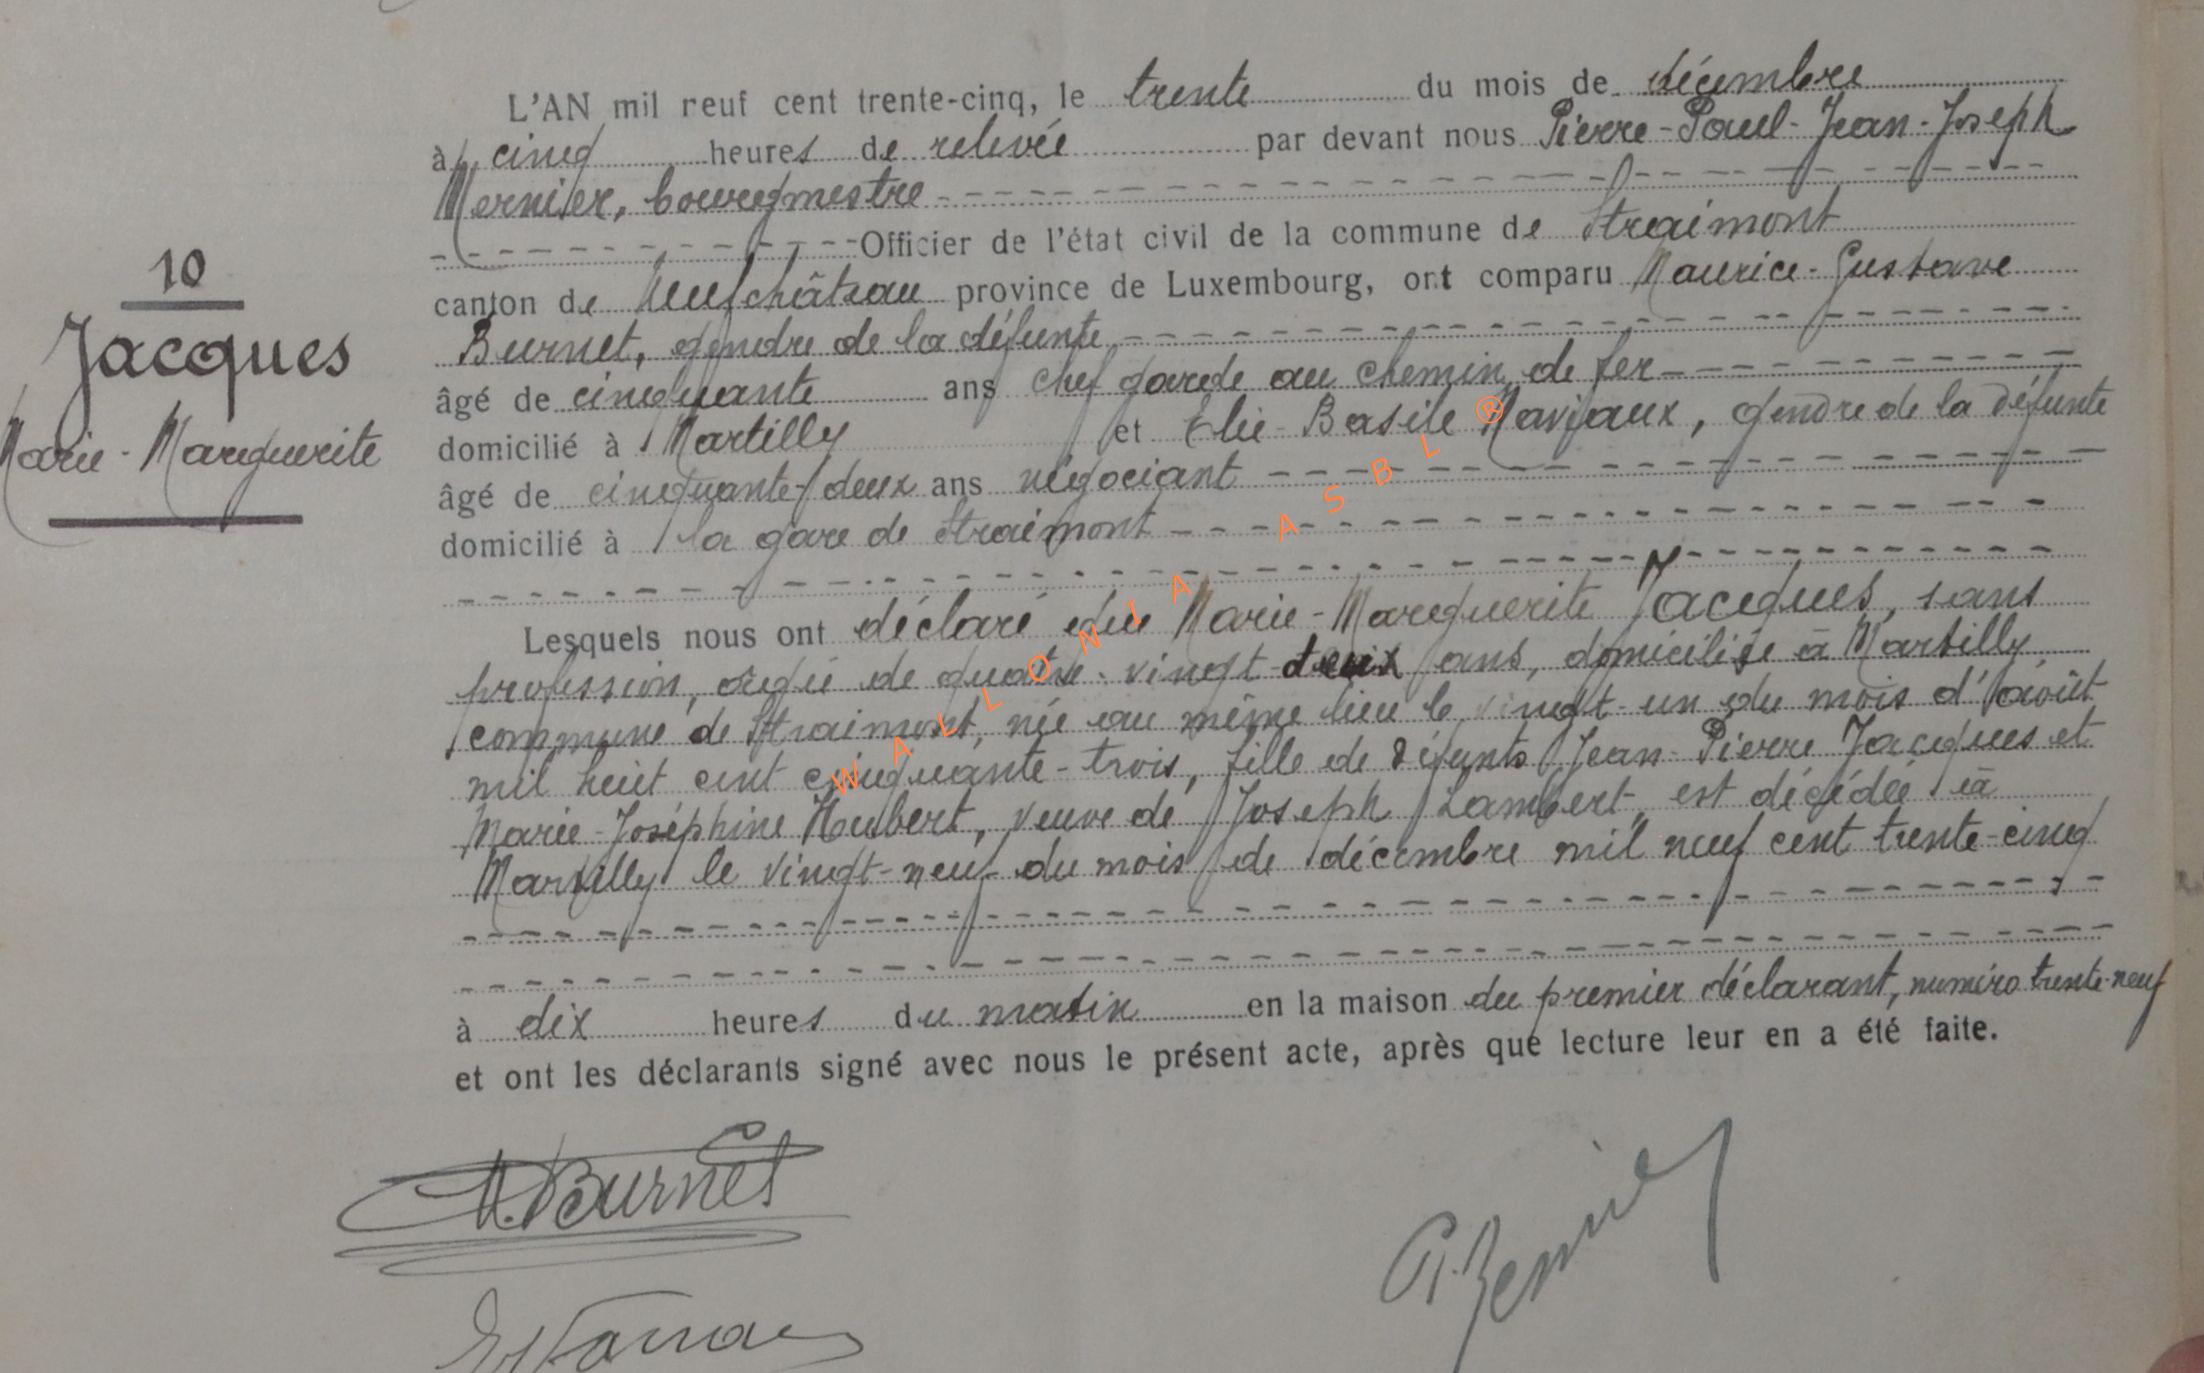 10
Jacques
Marie-Marguerite
L'AN mil neuf cent trente-cinq, le trente du mois de décembre
à cinq heures de relevée par devant nous Pierre-Paul-Jean-Joseph
Mernier, bourgmestre
Officier de l'état civil de la commune de Straimont
canton de Neufchâteau province de Luxembourg, ont comparu Maurice-Gustave
Burnet, gendre de la défunte
âgé de cinquante ans chef garde au chemin de fer
domicilié à Martilly et Elie-Basile Navjaux, gendre de la défunte
âgé de cinquante-deux ans négociant
domicilié à la gare de Straimont
Lesquels nous ont déclaré que Marie-Marguerite Jacques, sans
profession, âgée de quatre-vingt-deux ans, domiciliée à Martilly
commune de Straimont, née au même lieu le vingt-un du mois d'août
mil huit cent cinquante-trois, fille de défunts Jean-Pierre Jacques et
Marie-Joséphine Hubert, veuve de Joseph Lambert, est décédée à
Martilly le vingt-neuf du mois de décembre mil neuf cent trente-cinq
à dix heures du matin en la maison du premier déclarant, numéro trente-neuf
et ont les déclarants signé avec nous le présent acte, après que lecture leur en a été faite.
M. Burnet
WALLONIA ASBL ®